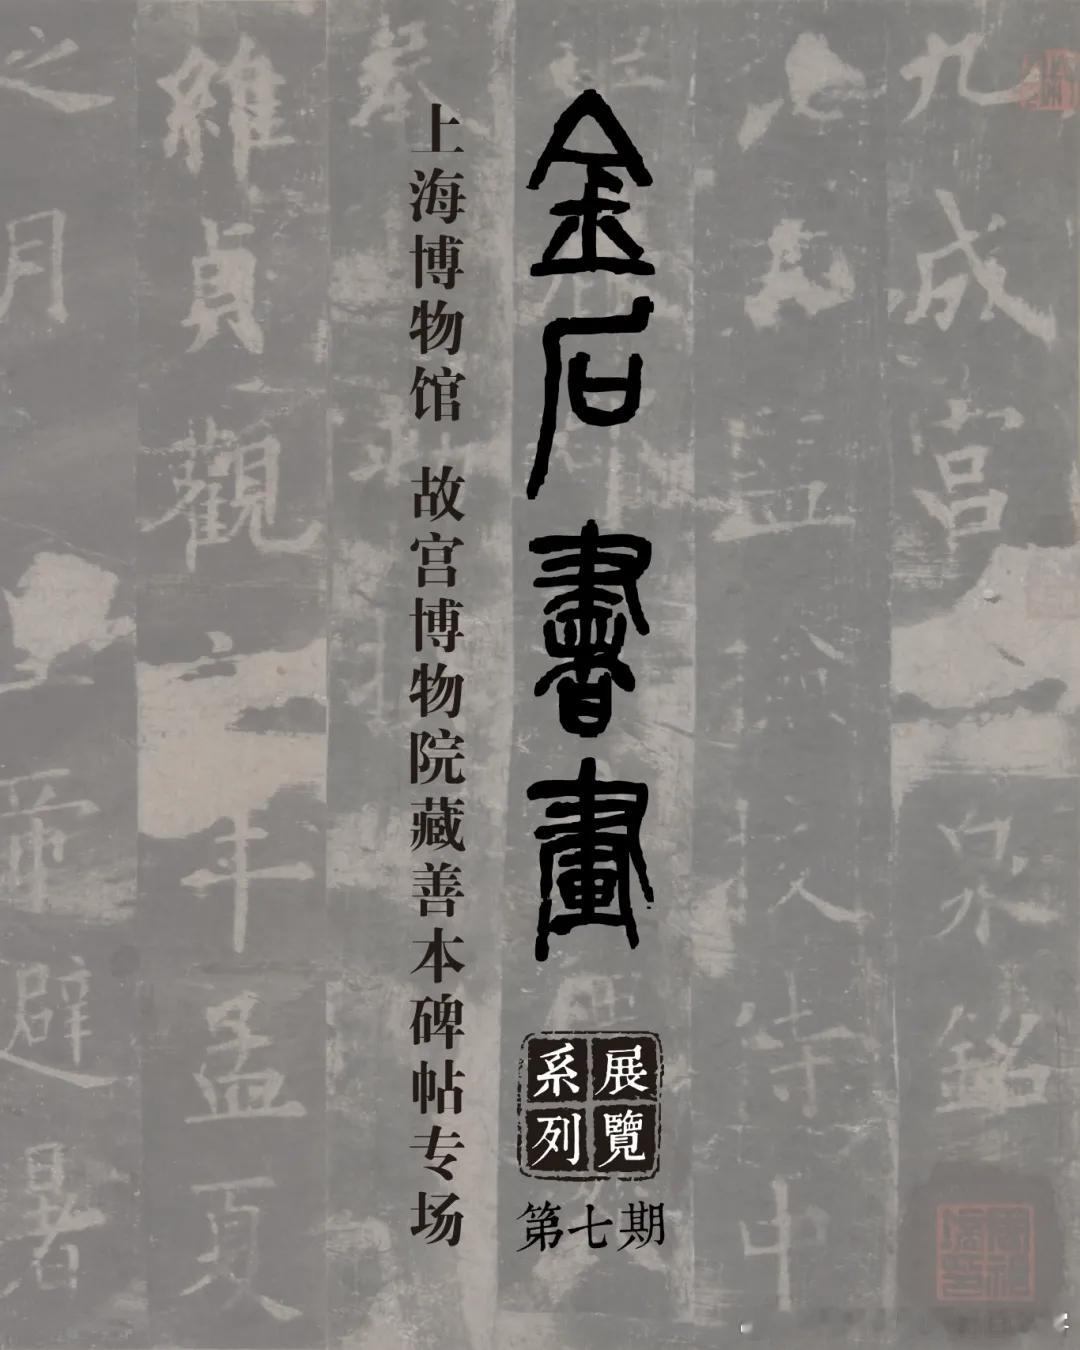 金石書畫
展覽
系列
第七期
上海博物馆 故宫博物院藏善本碑帖专场
九成宮
泉銘
維貞觀
年孟夏
之月
避暑